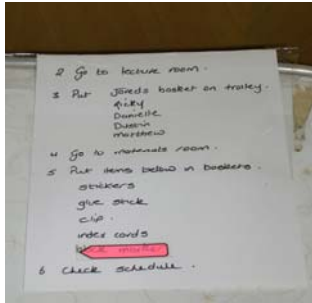 2 Go to lecture room.
3 Put Jareds basket on trolley.
Ricky
Danielle
Dustin
matthew
4 Go to materials room.
5 Put items below in baskets.
stickers
glue stick
clip.
index cards
black marker
6 Check schedule.